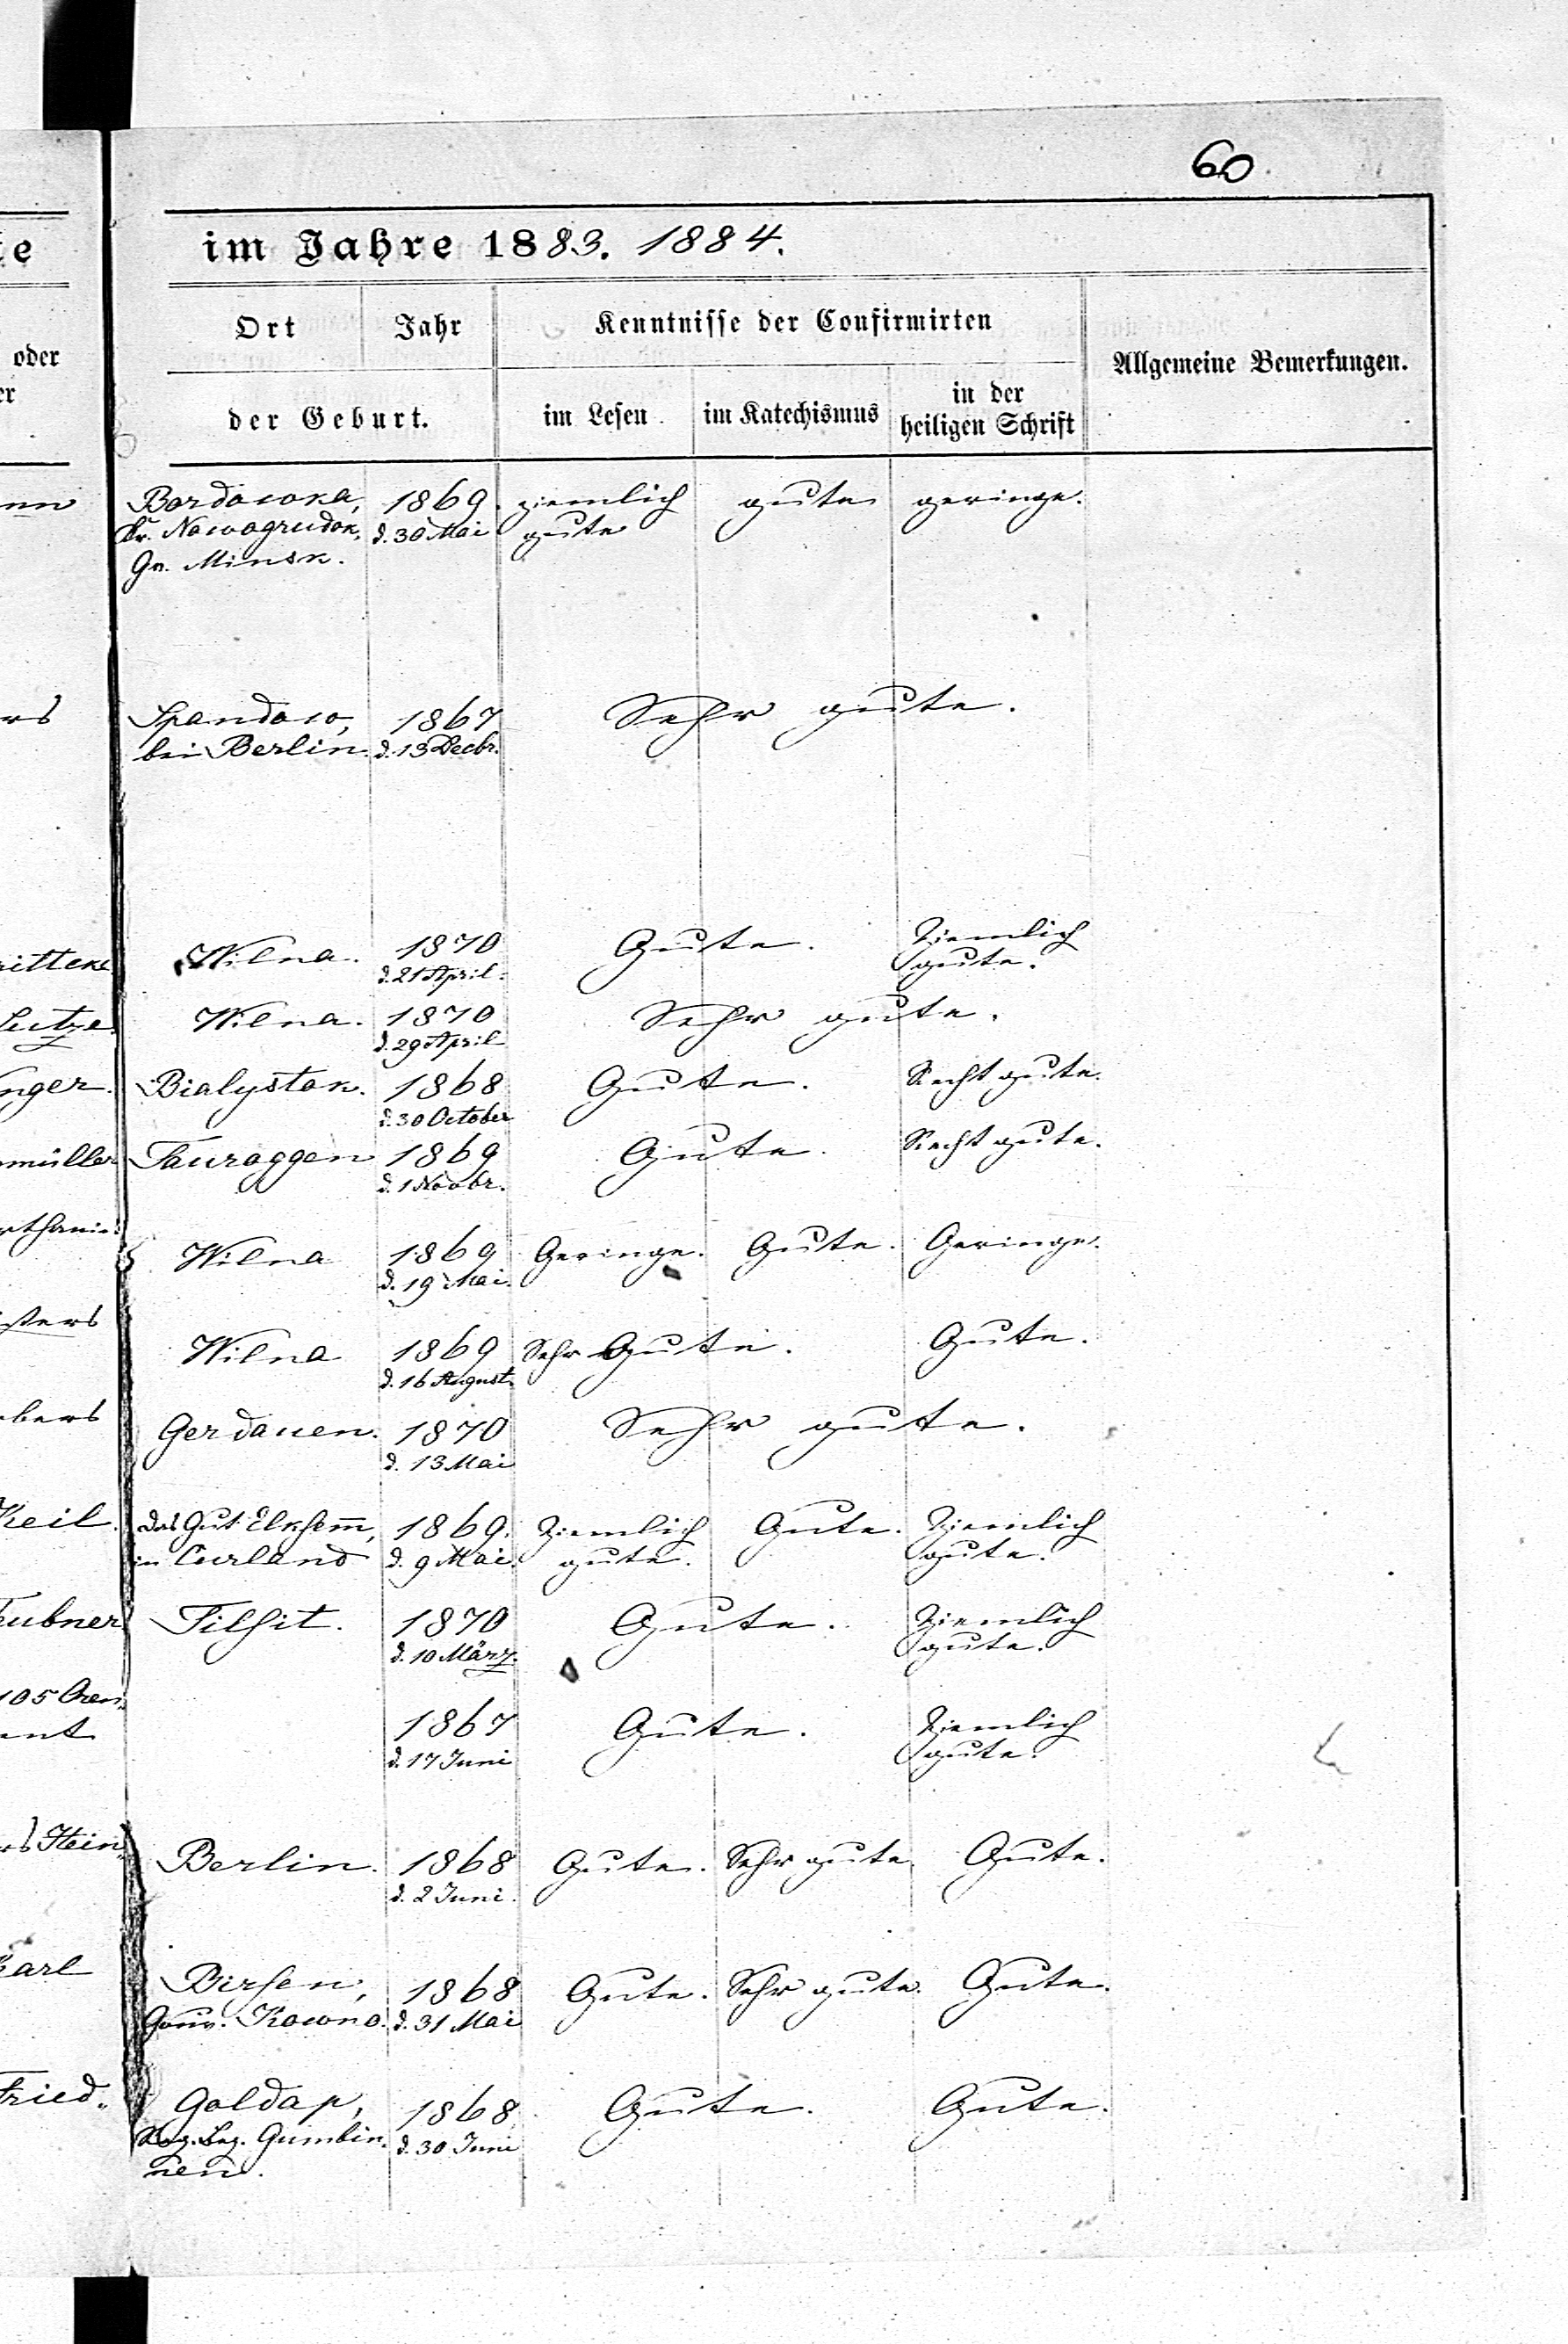 60.
te im Jahre 1883. 1884.
Ort Jahr Kenntnisse der Confirmirten
oder Allgemeine Bemerkungen.
er der Geburt. im Lesen im Katechismus in der
heiligen Schrift
nn Bordowka, 1869. ziemlich gute geringe.
Kr. Nowogrudok, d. 30 Mai gute
Gv. Minsk.
rs Spandow, 1867 Sehr gute.
bei Berlin. d. 13 Decbr.
ritteke Wilna. 1870 Gute. Ziemlich
d. 21 April. gute.
Lutze Wilna. 1870 Sehr gute.
d. 29 April
nger. Bialystok. 1868 Gute. Recht gute.
d. 30 October
müller Tauroggen 1869 Gute. Recht gute.
d. 1 Novbr.
Wilna 1869 Geringe. Gute. Geringe.
d. 19 Mai.
sters
Wilna 1869 Sehr Gute. Gute.
d. 16 August.
bers Gerdauen. 1870 Sehr gute.
d. 13 Mai
Keil. das Gut Elksem̄, 1869. Ziemlich Gute. Ziemlich
in Curland d. 9 Mai. gute. gute.
Teubner Tilsit. 1870 Gute. Ziemlich
d. 10 März. gute.
105 Oren
ent 1867 Gute. Ziemlich
d. 17 Juni gute.
rs Hein
Berlin. 1868 Gute. Sehr gute. Gute.
d. 2 Juni.
Karl Birsen, 1868 Gute. Sehr gute. Gute.
Gouv. Kowno. d. 31 Mai
Fried. Goldap, 1868 Gute. Gute.
Reg. Bez. Gumbin- d. 30 Juni
nen.